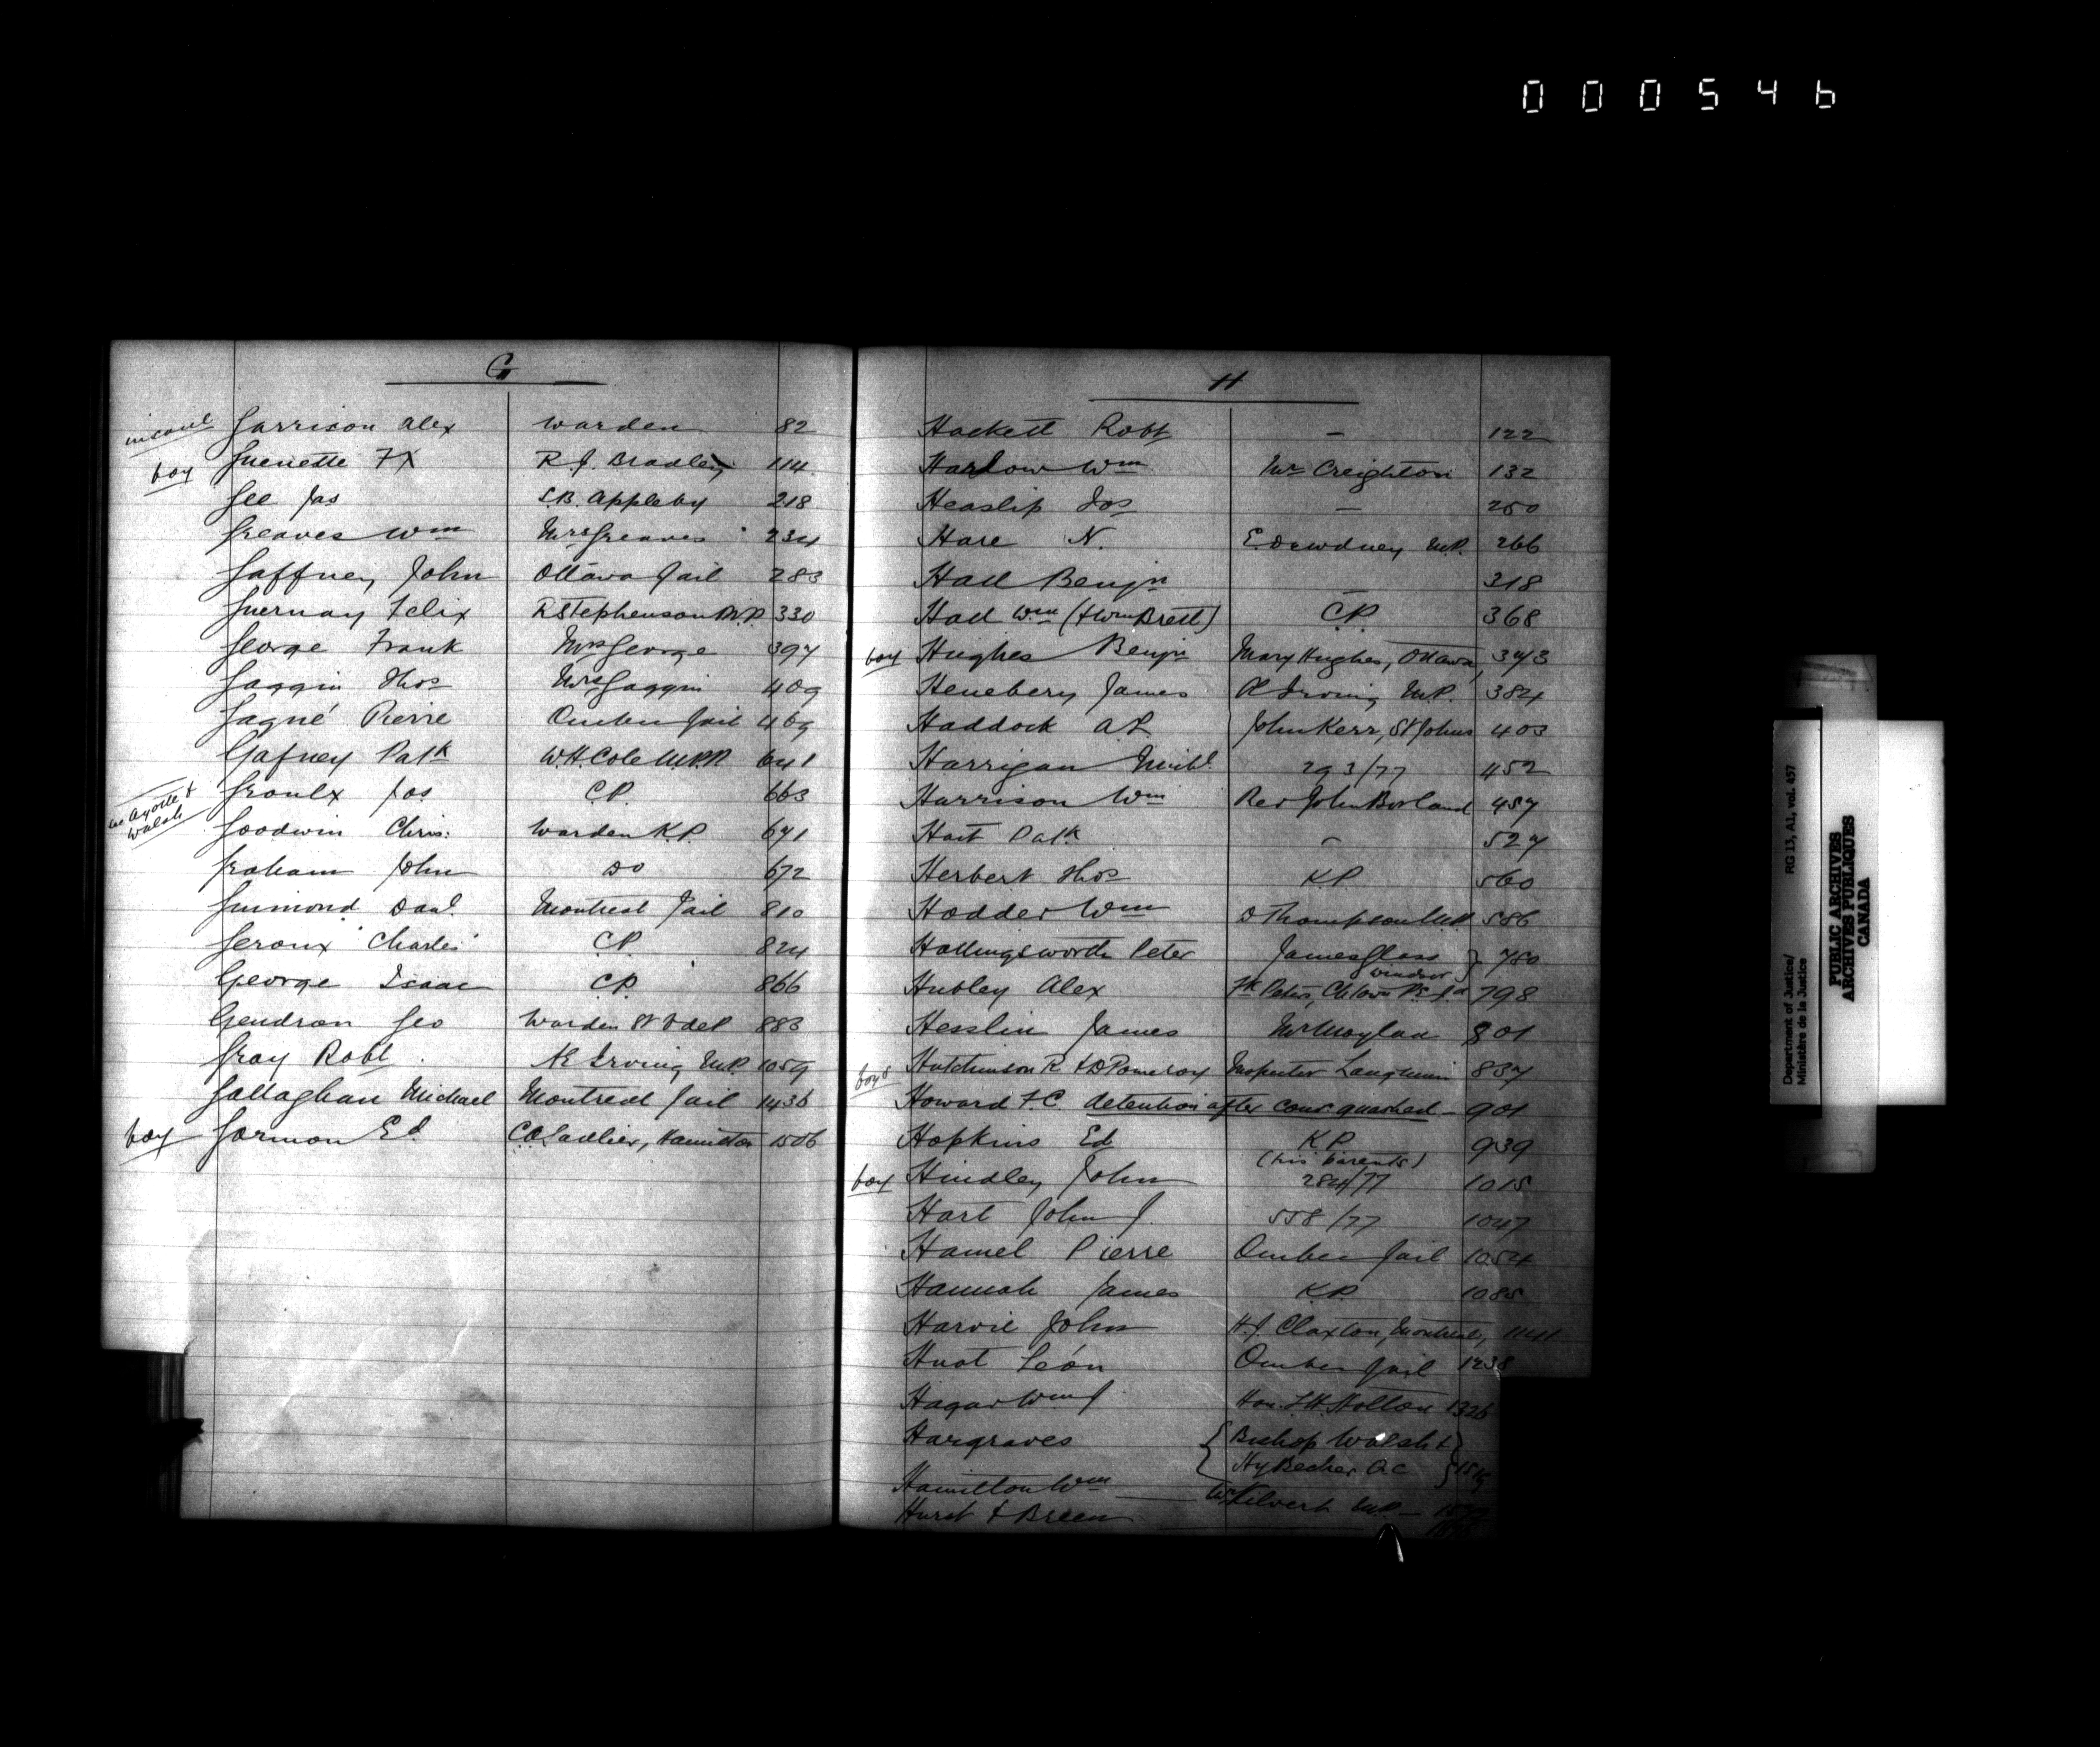 000546
G
insane Garrison Alex Warden 82
boy Guenette FX R.J. Bradley 114
Gee Jas S.B. Appleby 218
Greaves Wm Mrs Greaves 234
Gaffney John Ottawa Jail 283
Guernay Felix R Stephenson M.P. 330
George Frank Mrs George 397
Gaggin Thos Mrs Gaggin 409
Gagné Pierre Quebec Jail 469
Gafney Patk W.H. Cole M.P.P. 641
see Ayotte & Walsh
Groulx Jos C.P. 663
Goodwin Chris: Warden K.P. 671
Graham John Do 672
Guimond Danl. Montreal Jail 810
Geroux Charles C.P. 824
George Isaac C.P. 866
Gendron Geo Warden St V de P 883
Gray Robt. Æ Irving M.P. 1059
Gallaghan Michael Montreal Jail 1436
boy Gorman Ed. C.A. Sadlier, Hamilton 1506
H
Hackett Robt — 122
Harlow Wm Mr Creighton 132
Heaslip Jos — 250
Hare N. E. Dewdney M.P. 266
Hall Benjn — 318
Hall Wm (& Wm Brett) C.P. 368
boy Hughes Benjn Mary Hughes, Ottawa, 373
Henebery James Æ Irving M.P. 384
Haddock A John Kerr, St Johns 403
Harrigan Michl. 293/77 452
Harrison Wm Rev John Borland 457
Hart Patk — 527
Herbert Thos K.P. 560
Hodder Wm D Thompson M.P. 586
Hollingsworth Peter James Glass Windsor } 750
Hubley Alex Fk Peters, Ch'town P.E.I'd 798
Hesslin James Mr Moylan 801
boys Hutchinson R & D Pomeroy Inspector Langmuir 837
Howard F.C. detention after conv. quashed — 901
Hopkins Ed K.P. 939
boy Hindley John (his parents) 284/77 1015
Hart John J. 558/77 1047
Hamel Pierre Quebec Jail 1054
Hannah James K.P. 1085
Harvie John H.J. Claxton, Montreal, 1141
Huot Léon Quebec Jail 1238
Hagar Wm J Hon. L.H. Holton 1326
Hargraves { Bishop Walsh &
Hy Becher Q.C. }
Hamilton Wm — Kilvert M.P. —
Hurst & Breen
Department of Justice/
Ministère de la Justice
RG 13, A1, vol. 457
PUBLIC ARCHIVES
ARCHIVES PUBLIQUES
CANADA